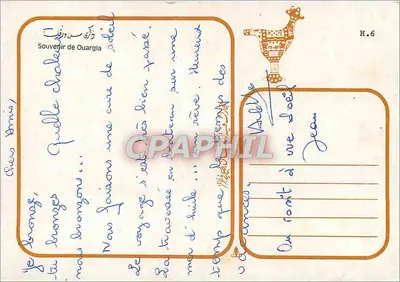 ذكرى من ورقلة
Souvenir de Ouargla
H.6
Chers Amis,
je bronze,
tu bronzes
nous bronzons... Quelle chaleur !
Nous faisons une cure de soleil
Le voyage s'est très bien passé.
La traversée en bateau sur une
mer d'huile... le rêve. Heureux
temps que le temps des
vacances.
On rôtit à vue d'œil
Jean
CPAPHIL